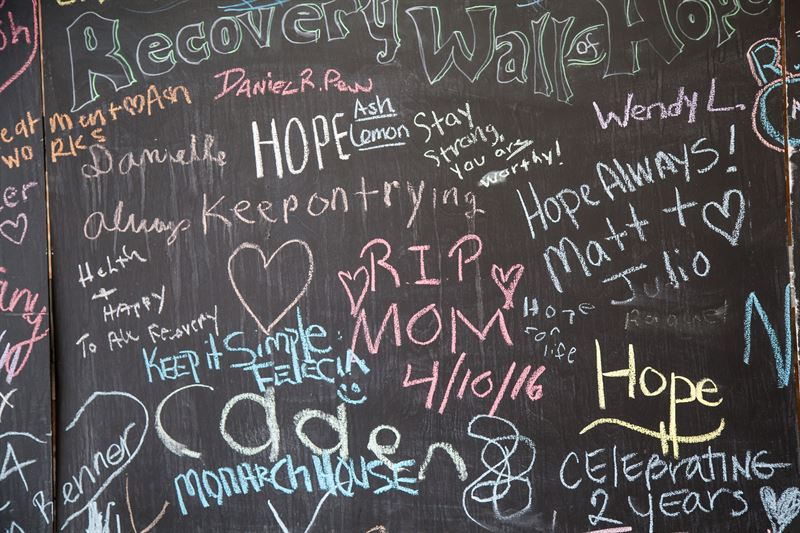 Recovery Wall of Hope
Daniel R. Pew
ment♡Ash
RKS
eat
wo
HOPE
Ash
Lemon
Stay
Strong,
you are
worthy!
Wendy L.
Danielle
Always Keep on trying
Hope Always!
Matt +
Julio
Health
+
Happy
To All Recovery
RIP
MOM
4/10/16
Hope
for
life
Keep it Simple
FELECIA
Hope
Caden
MONARCH HOUSE
Renner
CELEBRATING
2 Years